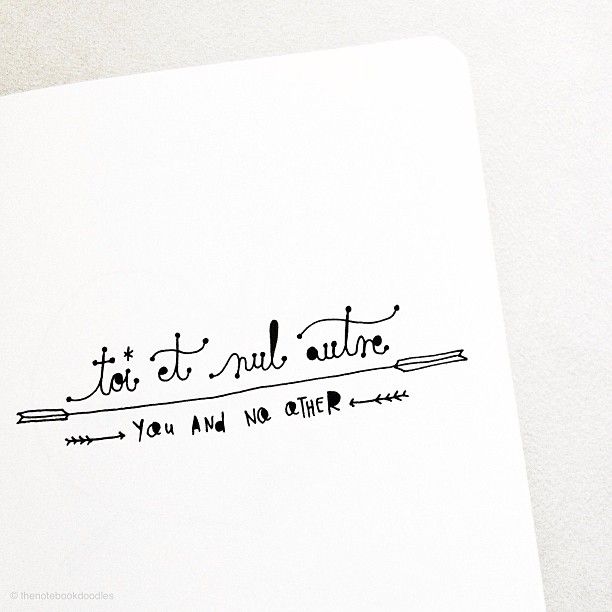 toi et nul autre
YOU AND NO OTHER
© thenotebookdoodles